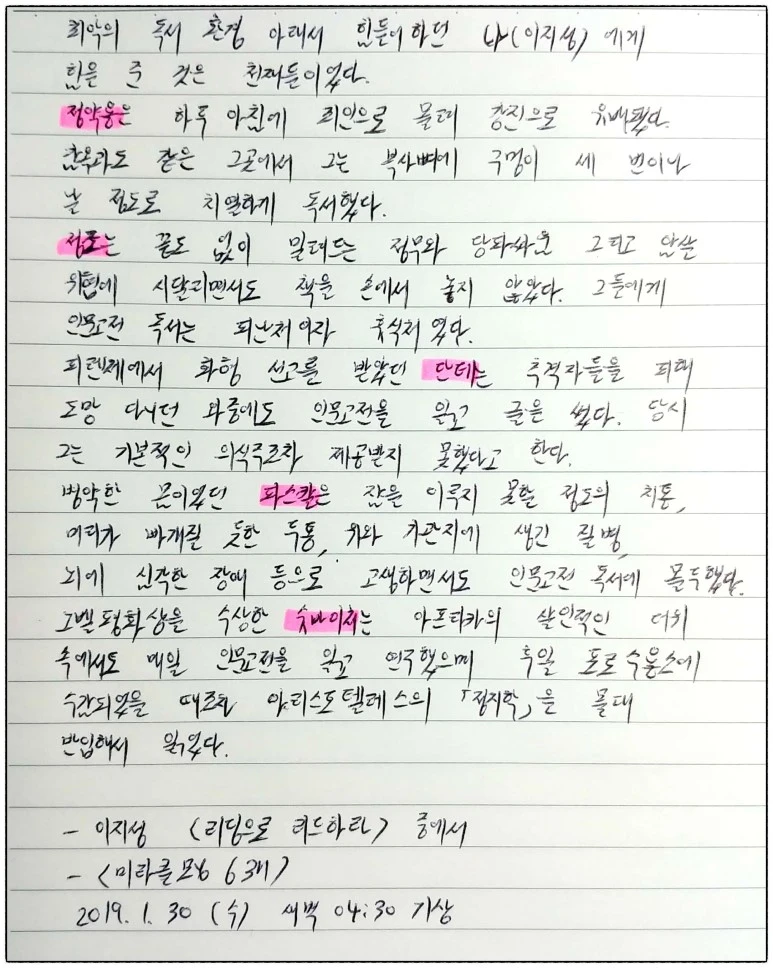 최악의 독서 환경 아래서 힘들어하던 나(이지성)에게
힘을 준 것은 천재들이었다.
정약용은 하루 아침에 죄인으로 몰려 강진으로 유배됐다.
감옥과도 같은 그곳에서 그는 복사뼈에 구멍이 세 번이나
날 정도로 치열하게 독서했다.
정조는 끝도 없이 밀려드는 정무와 당파싸움 그리고 암살
위협에 시달리면서도 책을 손에서 놓지 않았다. 그들에게
인문고전 독서는 피난처이자 휴식처였다.
피렌체에서 화형 선고를 받았던 단테는 추격자들을 피해
도망 다니던 와중에도 인문고전을 읽고 글을 썼다. 당시
그는 기본적인 의식주조차 제공받지 못했다고 한다.
병약한 몸이었던 파스칼은 잠을 이루지 못할 정도의 치통,
머리가 빠개질 듯한 두통, 위와 기관지에 생긴 질병,
뇌에 심각한 장애 등으로 고생하면서도 인문고전 독서에 몰두했다.
노벨평화상을 수상한 슛바이처는 아프리카의 살인적인 더위
속에서도 매일 인문고전을 읽고 연구했으며 후일 포로수용소에
수감되었을 때조차 아리스토텔레스의 「정치학」을 몰래
반입해서 읽었다.
- 이지성 〈리딩으로 리드하라〉 중에서
- 〈미라클모닝 6기〉
2019. 1. 30 (수) 새벽 04:30 기상